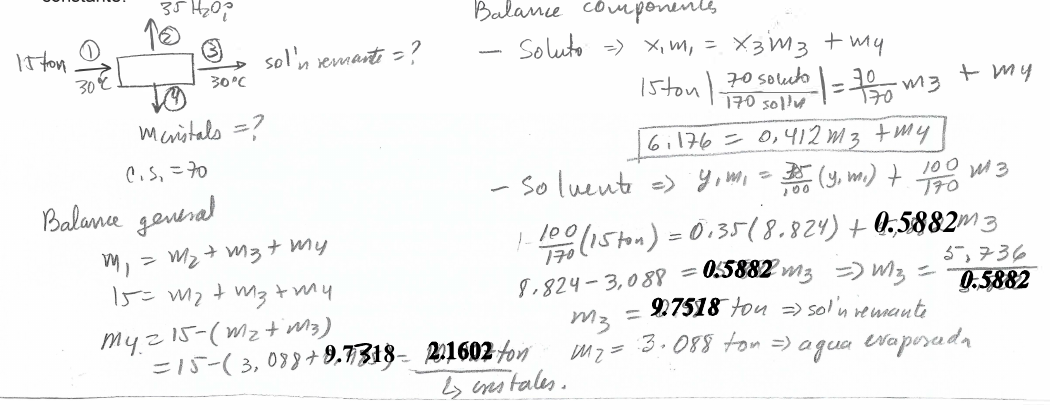 constante.
35 H2O
① ② ③
15 ton
30°C 30°C
sol'n remante = ?
④
m cristals = ?
C.S. = 70
Balance general
m1 = m2 + m3 + m4
15 = m2 + m3 + m4
m4 = 15 - (m2 + m3)
= 15 - (3,088 + 9.7318) = 2.1602 ton
↳ cristales.
Balance components
- Soluto => x1m1 = x3m3 + m4
15 ton | 70 soluto / 170 sol'n | = 70/170 m3 + m4
6.176 = 0,412 m3 + m4
- Solvente => y1m1 = 35/100 (y1m1) + 100/170 m3
100/170 (15 ton) = 0.35 (8.824) + 0.5882 m3
8.824 - 3.088 = 0.5882 m3 => m3 = 5,736 / 0.5882
m3 = 9.7518 ton => sol'n remante
m2 = 3.088 ton => agua evaporada